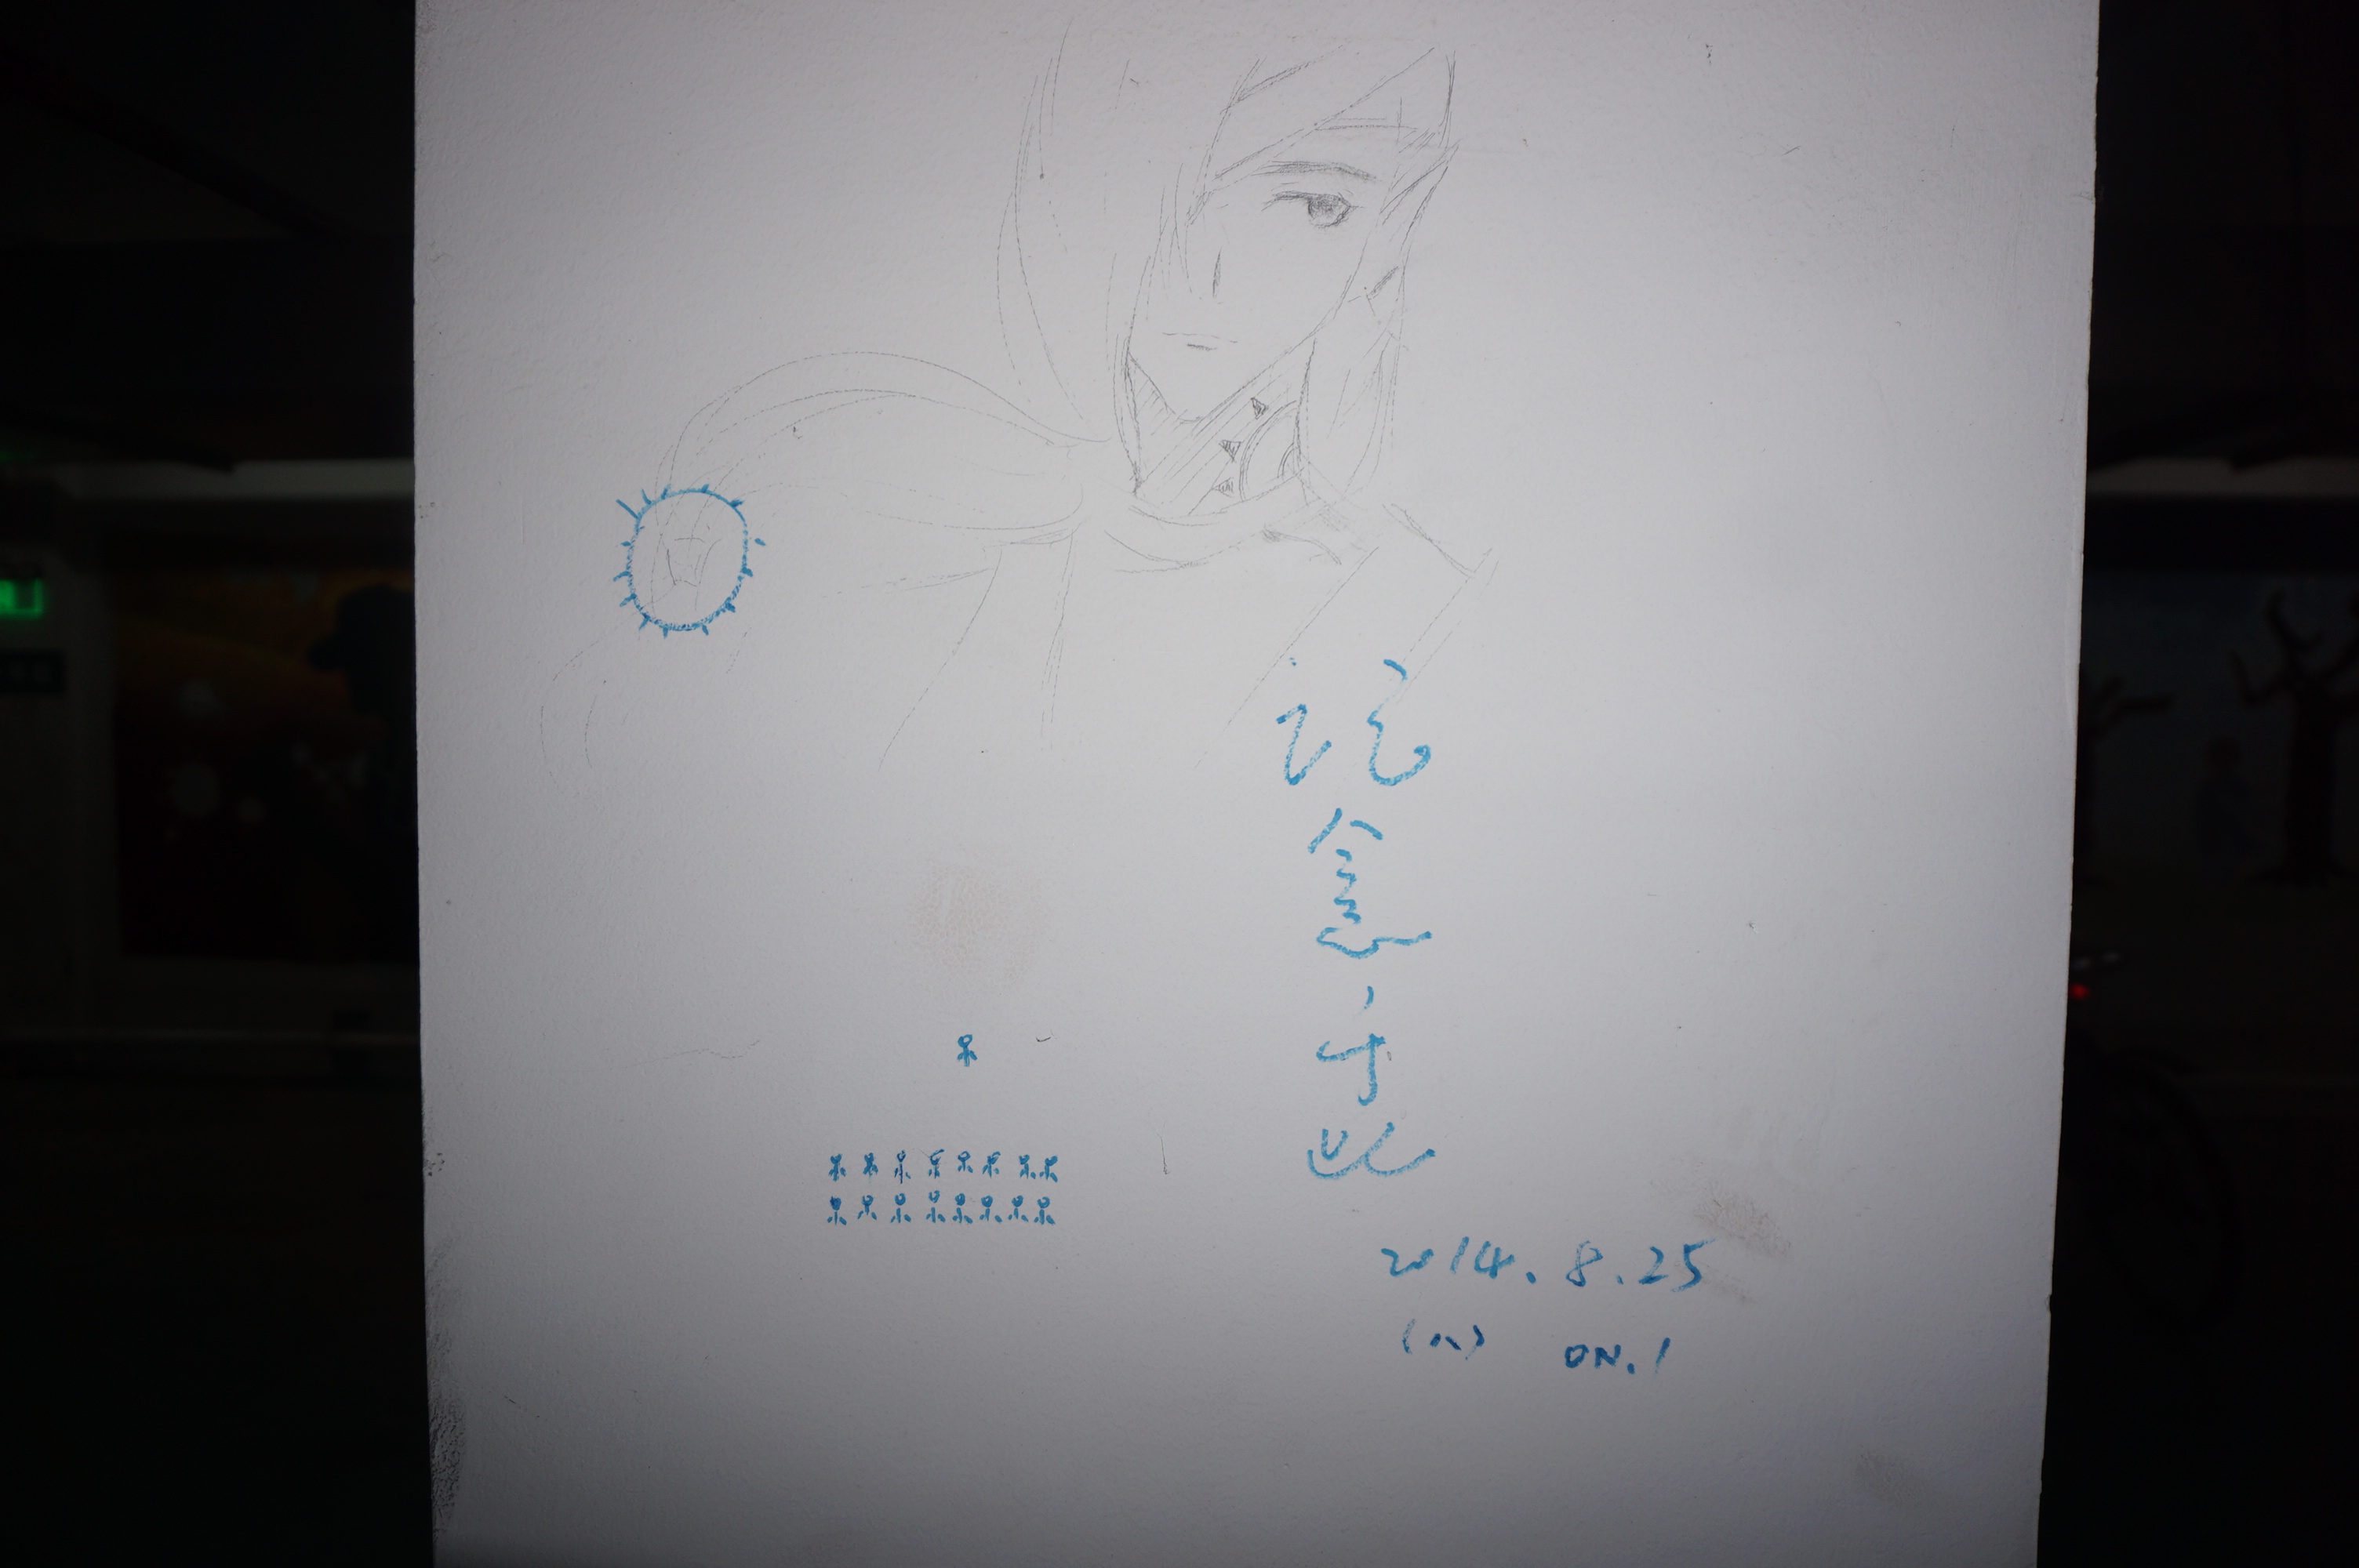 记念于此
2014.8.25
(八) ON.1